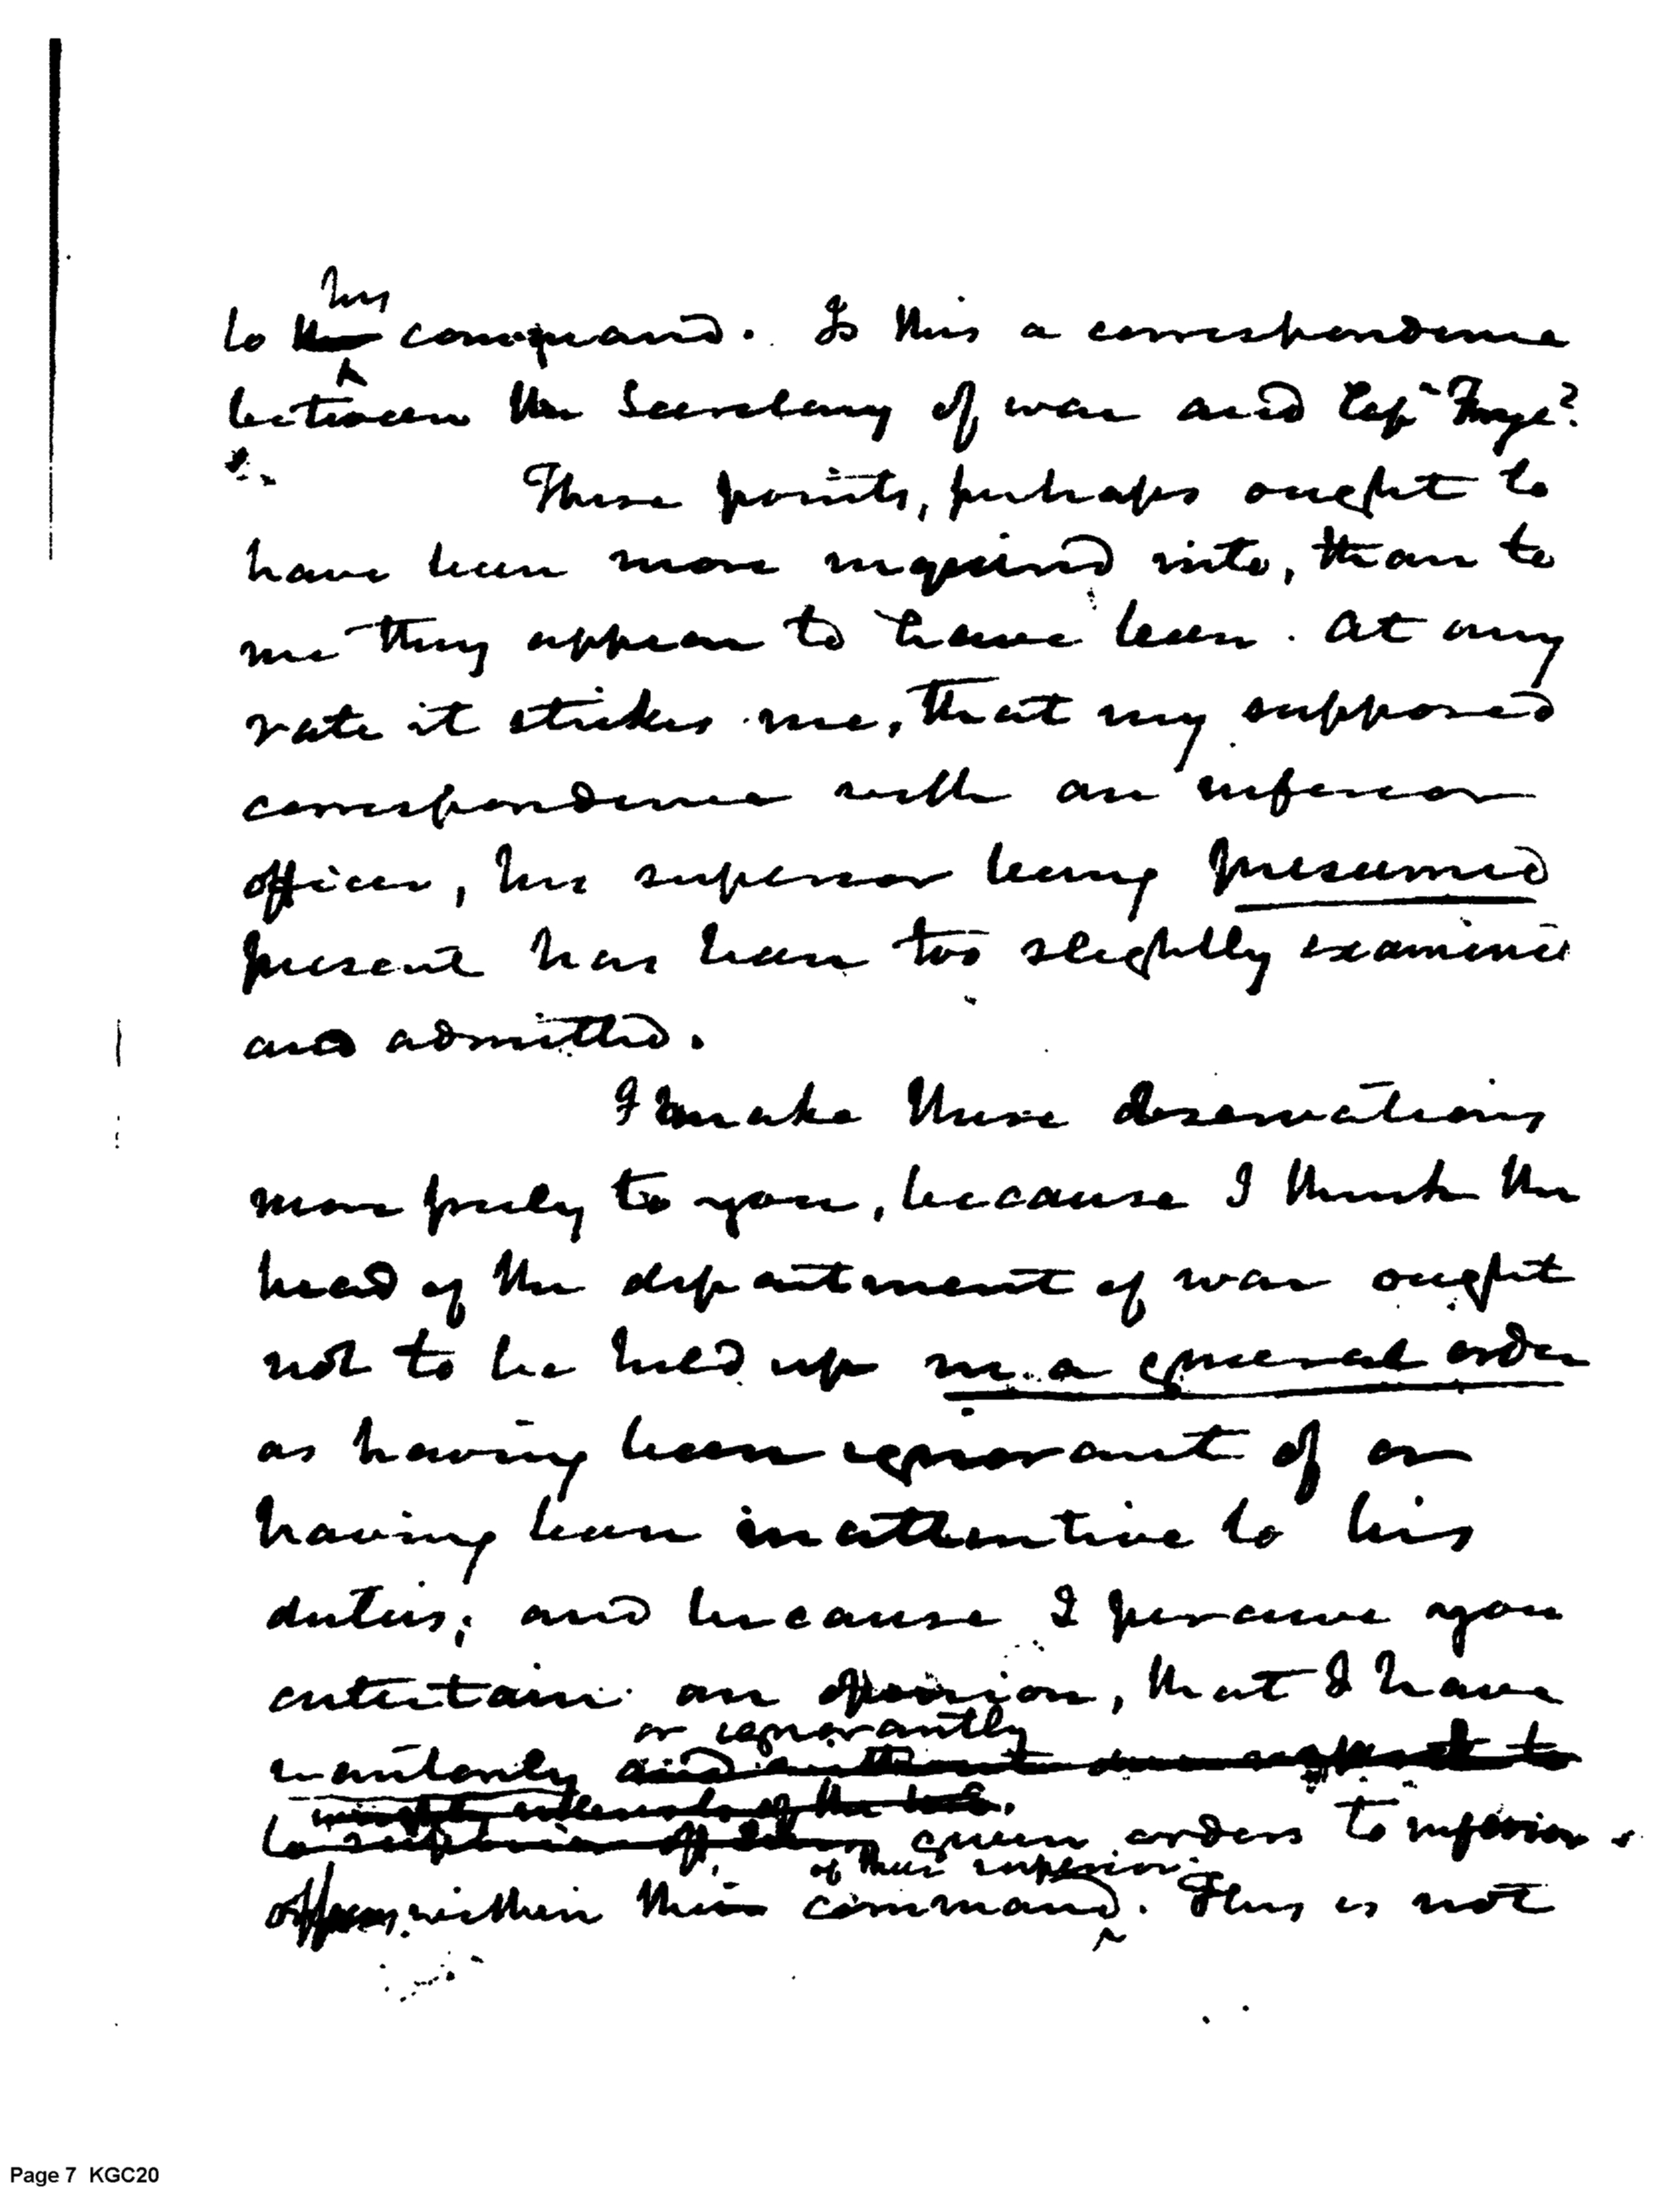 his
to the command. Is this a correspondence
between the Secretary of war and Capt Frye?
These points, perhaps ought to
have been more inquired into, than to
me they appear to have been. At any
rate it strikes me, that my supposed
correspondence with an inferior
officer, his superior being presumed
present has been too slightly examined
and admitted.
I make these observations
more freely to you, because I think the
head of the department of war ought
not to be held up in a general order
as having been ignorant of or
having been inattentive to his
duties; and because I perceive you
entertain an opinion, that I have
or ignorantly
wantonly and without due regard to
of the
given orders to inferior
of their superior
officers within their command. This is not
Page 7 KGC20